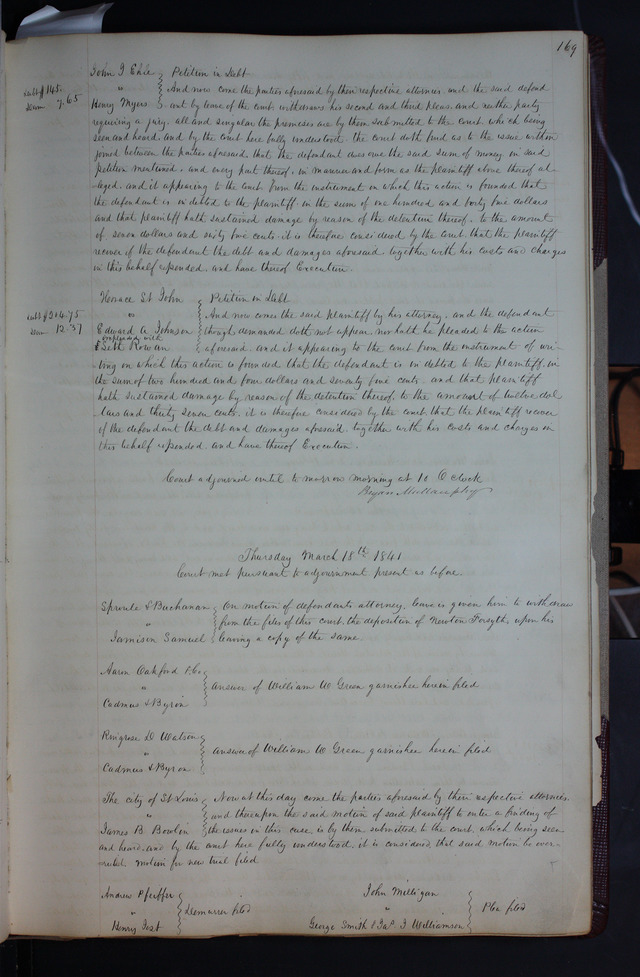 169
John J Ehle } Petition in Debt
debt $145.
dam 7.65
" And now come the parties aforesaid by their respective attornies and the said defend
Henry Myers } ant by leave of the court withdraws his second and third pleas, and neither party
requiring a jury, all and singular the premises are by them submitted to the court which being
seen and heard, and by the court here fully understood the court doth find as to the issue within
joined between the parties aforesaid, that the defendant does owe the said sum of money in said
petition mentioned, and every part thereof, in manner and form as the plaintiff above thereof al-
leged, and it appearing to the court from the instrument on which this action is founded that
the defendant is in debted to the plaintiff in the sum of one hundred and forty five dollars
and that plaintiff hath sustained damage by reason of the detention thereof, to the amount
of seven dollars and sixty five cents. it is therefore considered by the court, that the plaintiff
recover of the defendant the debt and damages aforesaid, together with his costs and charges
in this behalf expended, and have thereof Execution.
Horace St John } Petition in Debt
debt $204.75
dam 12.37
" And now comes the said plaintiff by his attorney, and the defendant
Edward A Johnson } though demanded doth not appear nor hath he pleaded to the action
impleaded with
Seth Rowan } aforesaid, and it appearing to the court from the instrument of wri-
ting on which this action is founded that the defendant is in debted to the plaintiff, in
the sum of two hundred and four dollars and seventy five cents, and that plaintiff
hath sustained damage by reason of the detention thereof, to the amount of twelve dol-
lars and thirty seven cents, it is therefore considered by the court, that the plaintiff recover
of the defendant the debt and damages aforesaid, together with his costs and charges in
this behalf expended, and have thereof Execution.
Court adjourned until to morrow morning at 10 O'clock
Bryan Mullanphy
Thursday March 18th 1841
Court met pursuant to adjournment present as before
Sproule & Buchanan } On motion of defendants attorney, leave is given him to withdraw
" from the files of this court, the deposition of Newton Forsyth, upon his
Jamison Samuel } leaving a copy of the same
Aaron Oakford & Co
" } answer of William W Green garnishee herein filed
Cadmus & Byron
Ringrose D Watson
" } answer of William W Green garnishee herein filed
Cadmus & Byron
The city of St Louis } Now at this day come the parties aforesaid by their respective attornies
" and thereupon the said motion of said plaintiff to enter a finding of
James B Bowlin } the issues in this case, is by them submitted to the court, which being seen
and heard, and by the court here fully understood, it is considered that said motion be over-
ruled. motion for new trial filed
Andrew Pfeiffer
" } Demurrer filed
Henry Jost
John Milligan
" } Plea filed
George Smith & Jas J Williamson